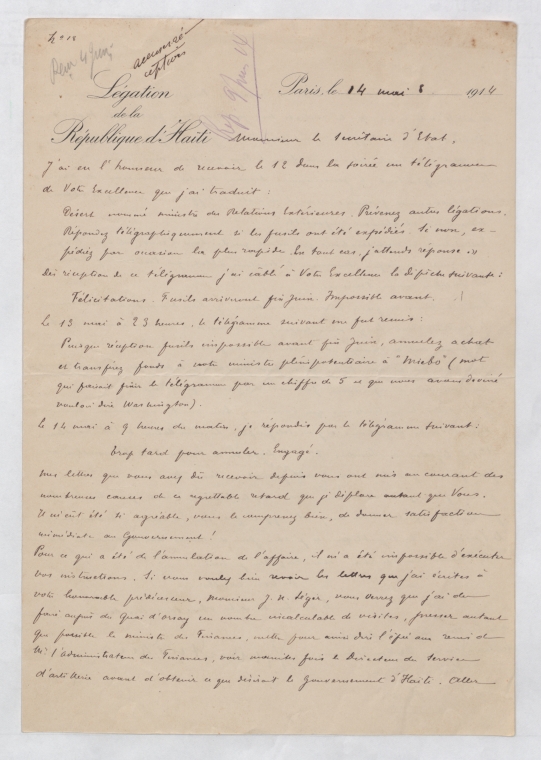 Légation
de la
République d'Haïti
Paris, le 14 mai 1914
Monsieur le Secrétaire d'Etat,
J'ai eu l'honneur de recevoir le 12 dans la soirée un télégramme
de Votre Excellence que j'ai traduit :
Désert nommé ministre des Relations Extérieures. Prévenez autres légations.
Répondez télégraphiquement si les fusils ont été expédiés. Si non, ex-
pédiez par occasion la plus rapide. En tout cas, j'attends réponse.
Dès réception de ce télégramme j'ai câblé à Votre Excellence la dépêche suivante :
Félicitations. Fusils arriveront fin Juin. Impossible avant.
Le 13 mai à 23 heures, le télégramme suivant me fut remis :
Puisque réception fusils impossible avant fin Juin, annulez achat
et transférez fonds à notre ministre plénipotentiaire à " " (mot
qui faisait finir le télégramme par un chiffre de 5 et que nous avons deviné
vouloir dire Washington).
Le 14 mai à 9 heures du matin, je répondis par le télégramme suivant :
Trop tard pour annuler. Engagé.
Mes lettres que vous avez dû recevoir depuis vous ont mis au courant des
nombreuses causes de ce regrettable retard que je déplore autant que Vous.
Il m'eût été si agréable, vous le comprenez bien, de donner satisfaction
immédiate au Gouvernement !
Pour ce qui a été de l'annulation de l'affaire, il m'a été impossible d'exécuter
vos instructions. Si vous voulez bien revoir les lettres que j'ai écrites à
votre honorable prédécesseur, Monsieur J. N. Léger, vous verrez que j'ai dû
faire auprès du Quai d'Orsay un nombre incalculable de visites, presser autant
que possible le ministre des Finances, mettre pour ainsi dire l'épée aux reins de
M. l'administrateur des Finances, voir maintes fois le Directeur du Service
d'artillerie avant d'obtenir ce que désirait le Gouvernement d'Haïti. Aller